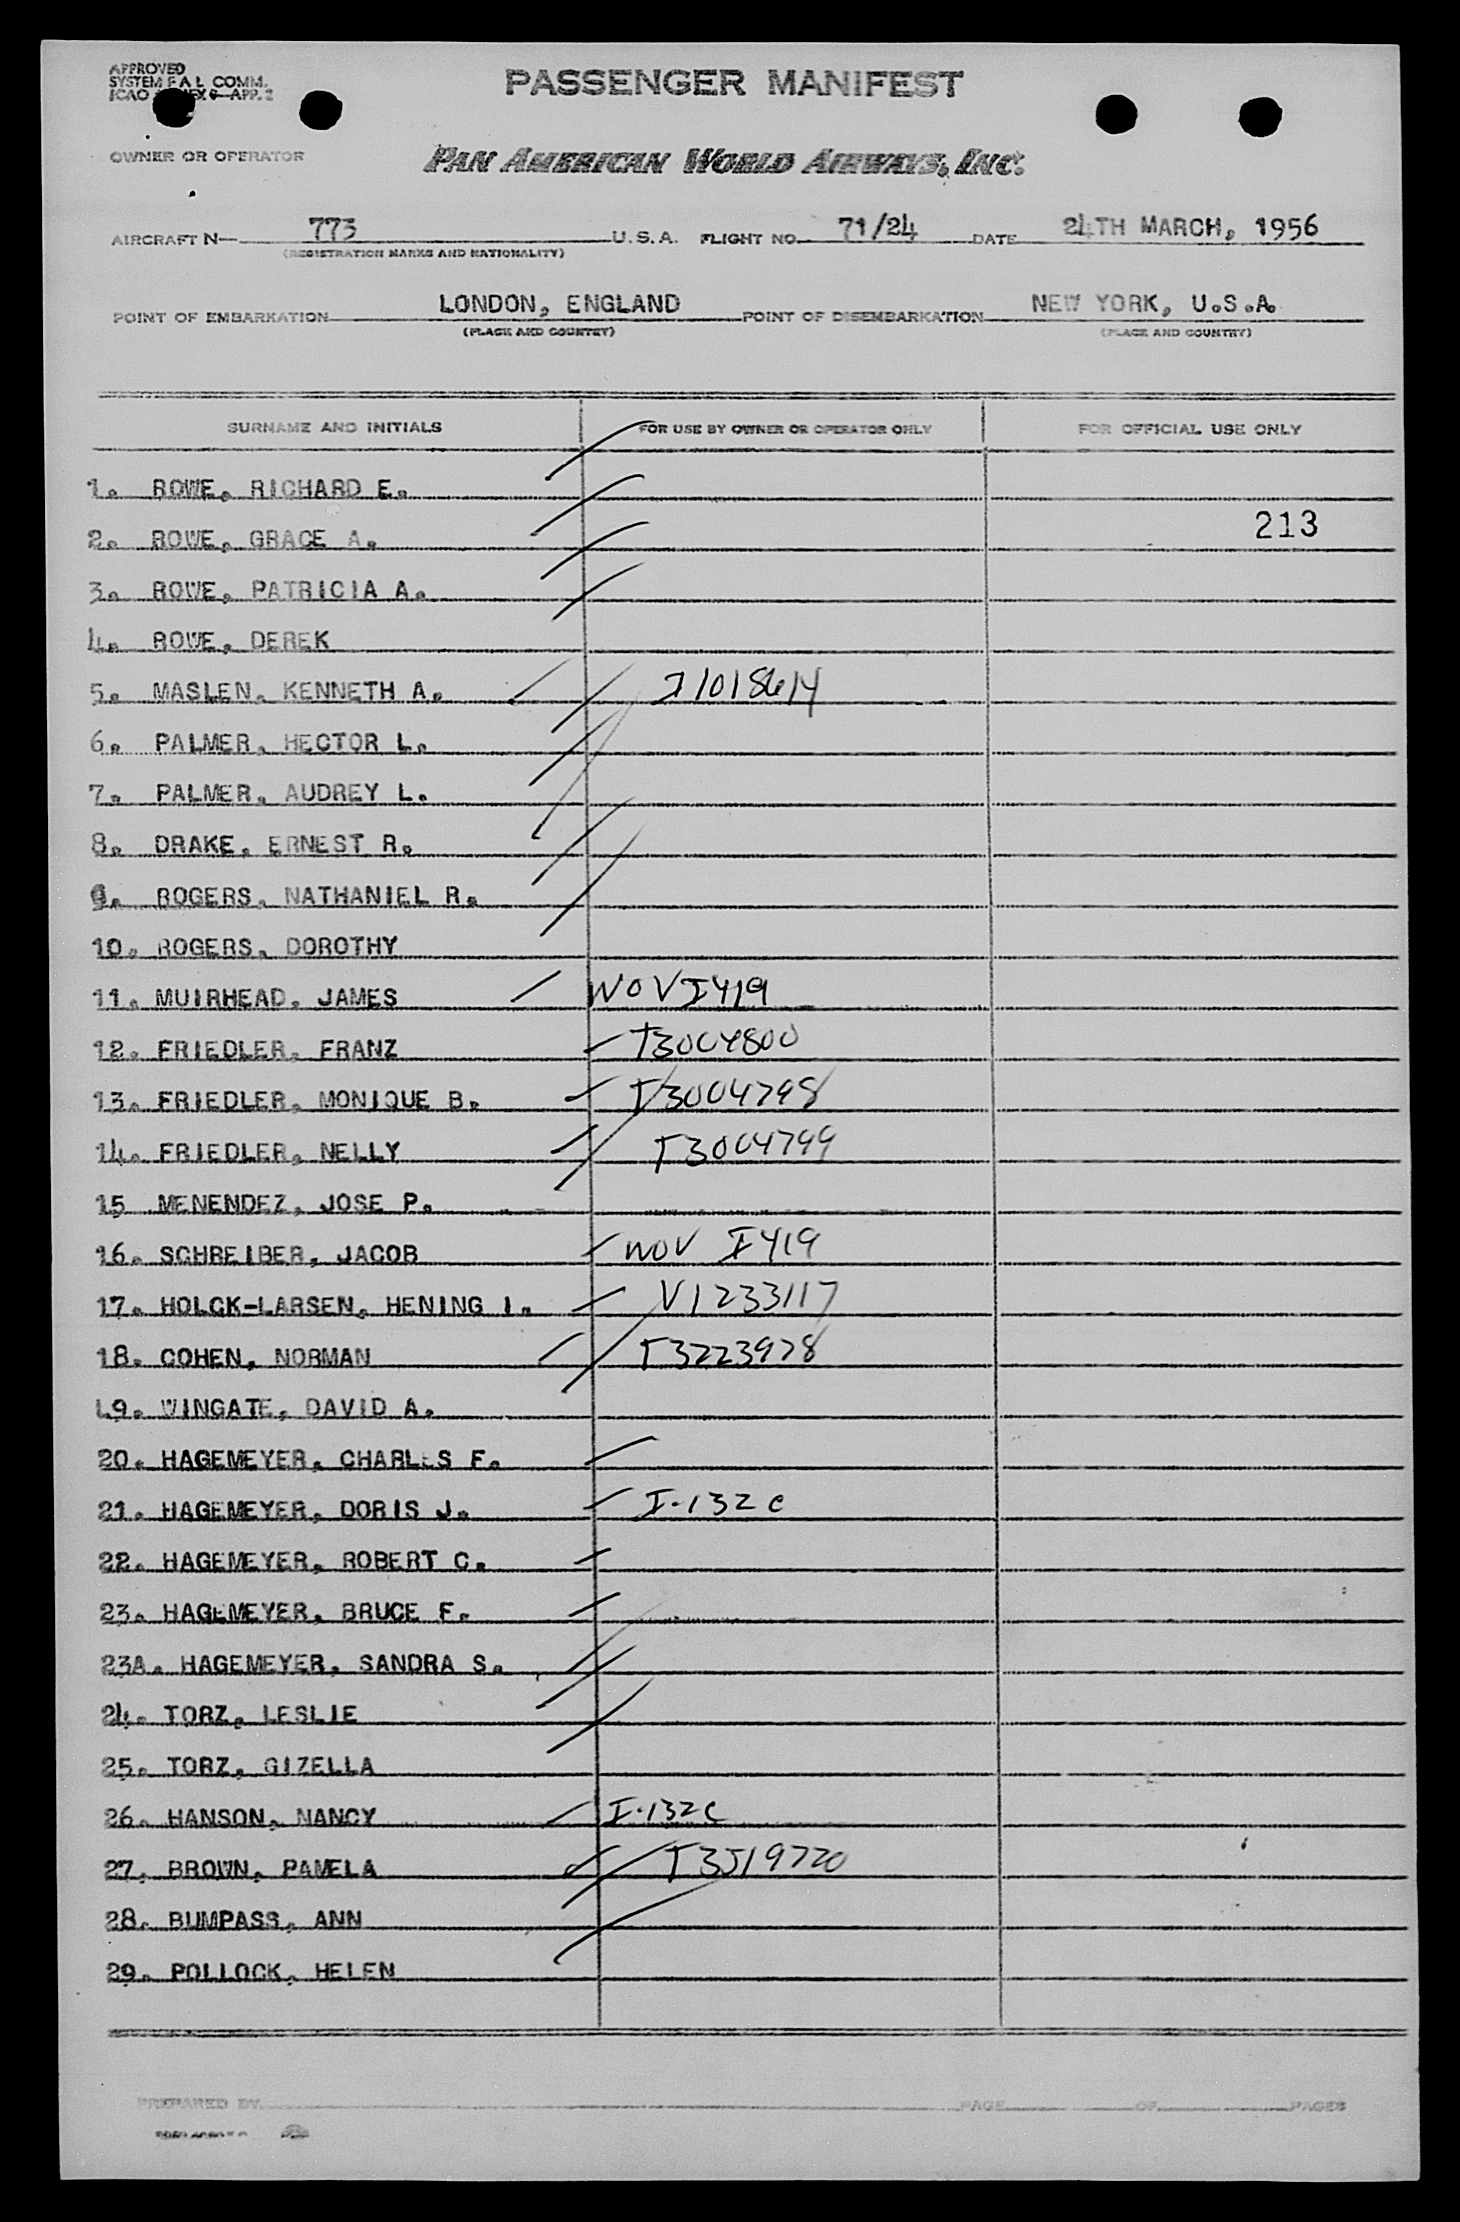 APPROVED
SYSTEM F A L COMM.
ICAO 9—APP. 2
PASSENGER MANIFEST
OWNER OR OPERATOR PAN AMERICAN WORLD AIRWAYS, INC.
AIRCRAFT N— 773 U.S.A. FLIGHT NO. 71/24 DATE 24TH MARCH, 1956
(REGISTRATION MARKS AND NATIONALITY)
POINT OF EMBARKATION LONDON, ENGLAND POINT OF DISEMBARKATION NEW YORK, U.S.A.
(PLACE AND COUNTRY) (PLACE AND COUNTRY)
SURNAME AND INITIALS FOR USE BY OWNER OR OPERATOR ONLY FOR OFFICIAL USE ONLY
1. ROWE, RICHARD E.
2. ROWE, GRACE A. 213
3. ROWE, PATRICIA A.
4. ROWE, DEREK
5. MASLEN, KENNETH A. I1018614
6. PALMER, HECTOR L.
7. PALMER, AUDREY L.
8. DRAKE, ERNEST R.
9. ROGERS, NATHANIEL R.
10. ROGERS, DOROTHY
11. MUIRHEAD, JAMES WOV I419
12. FRIEDLER, FRANZ T3004800
13. FRIEDLER, MONIQUE B. T3004798
14. FRIEDLER, NELLY T3004799
15 MENENDEZ, JOSE P.
16. SCHREIBER, JACOB WOV I419
17. HOLCK-LARSEN, HENING I. V1233117
18. COHEN, NORMAN T3223978
19. WINGATE, DAVID A.
20. HAGEMEYER, CHARLES F.
21. HAGEMEYER, DORIS J. I-132c
22. HAGEMEYER, ROBERT C.
23. HAGEMEYER, BRUCE F.
23A. HAGEMEYER, SANDRA S.
24. TORZ, LESLIE
25. TORZ, GIZELLA
26. HANSON, NANCY I-132c
27. BROWN, PAMELA T3519720
28. BUMPASS, ANN
29. POLLOCK, HELEN
PREPARED BY PAGE OF PAGES